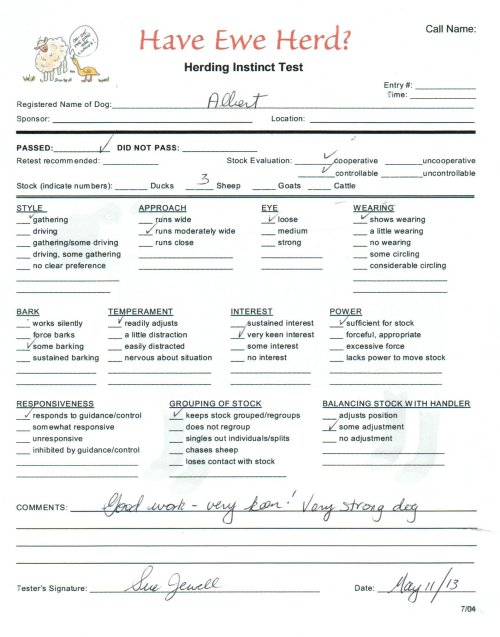 Have Ewe Herd?
Call Name:
Herding Instinct Test
Entry #:
Time:
Registered Name of Dog: Albert
Sponsor: Location:
PASSED: ✓ DID NOT PASS:
Retest recommended: Stock Evaluation: ✓ cooperative uncooperative
✓ controllable uncontrollable
Stock (indicate numbers): Ducks 3 Sheep Goats Cattle
STYLE APPROACH EYE WEARING
✓ gathering runs wide ✓ loose ✓ shows wearing
driving ✓ runs moderately wide medium a little wearing
gathering/some driving runs close strong no wearing
driving, some gathering some circling
no clear preference considerable circling
BARK TEMPERAMENT INTEREST POWER
works silently ✓ readily adjusts sustained interest ✓ sufficient for stock
force barks a little distraction ✓ very keen interest forceful, appropriate
✓ some barking easily distracted some interest excessive force
sustained barking nervous about situation no interest lacks power to move stock
RESPONSIVENESS GROUPING OF STOCK BALANCING STOCK WITH HANDLER
✓ responds to guidance/control ✓ keeps stock grouped/regroups adjusts position
somewhat responsive does not regroup ✓ some adjustment
unresponsive singles out individuals/splits no adjustment
inhibited by guidance/control chases sheep
loses contact with stock
COMMENTS: Good work - very keen! Very strong dog
Tester's Signature: Sue Jewell Date: May 11/13
7/04